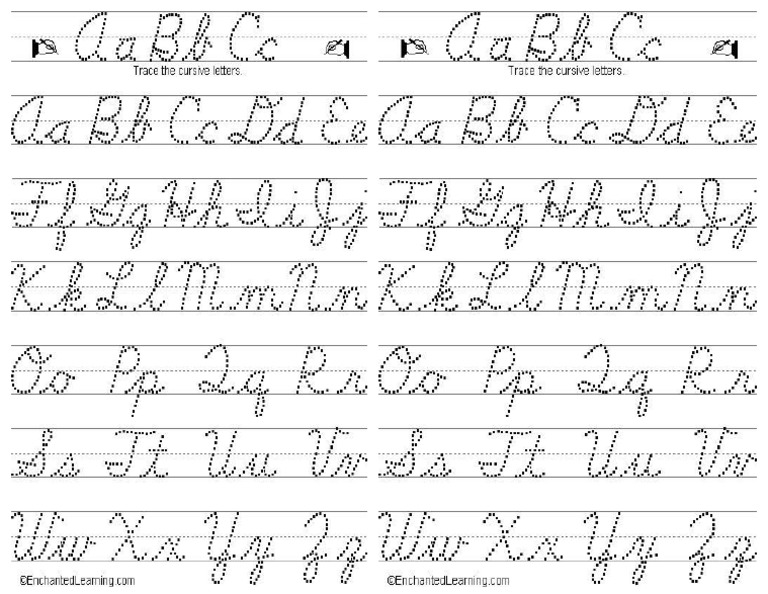 Aa Bb Cc
Trace the cursive letters.
Aa Bb Cc Dd Ee
Ff Gg Hh Ii Jj
Kk Ll Mm Nn
Oo Pp Qq Rr
Ss Tt Uu Vv
Ww Xx Yy Zz
©EnchantedLearning.com
Aa Bb Cc
Trace the cursive letters.
Aa Bb Cc Dd Ee
Ff Gg Hh Ii Jj
Kk Ll Mm Nn
Oo Pp Qq Rr
Ss Tt Uu Vv
Ww Xx Yy Zz
©EnchantedLearning.com